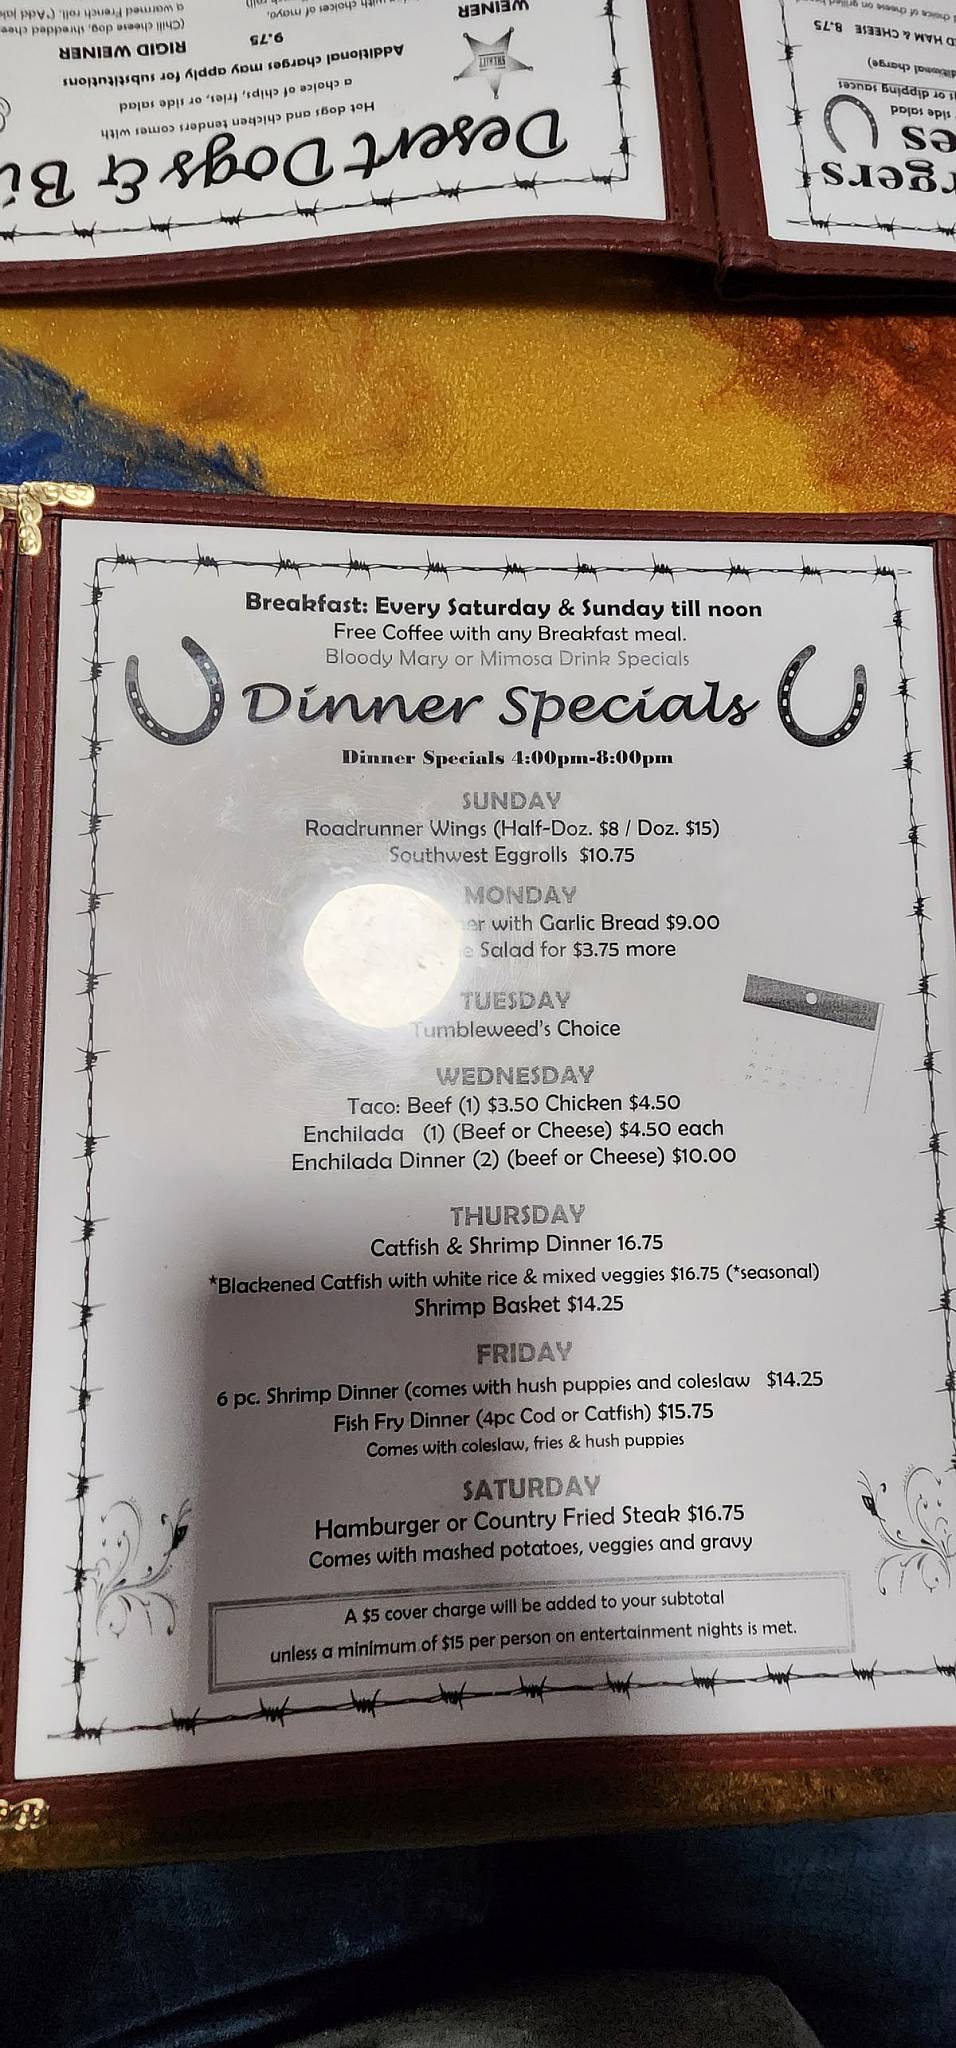 Desert Dogs &
Hot dogs and chicken tenders comes with
a choice of chips, fries, or side salad
Additional charges may apply for substitutions
RIGID WEINER 9.75
(Chili cheese dog, shredded
a warmed French roll. (Add
WEINER
with choices of mayo,
side salad
or dipping sauces
charge)
HAM & CHEESE 8.75
choice of cheese on grilled
Breakfast: Every Saturday & Sunday till noon
Free Coffee with any Breakfast meal.
Bloody Mary or Mimosa Drink Specials
Dinner Specials
Dinner Specials 4:00pm-8:00pm
SUNDAY
Roadrunner Wings (Half-Doz. $8 / Doz. $15)
Southwest Eggrolls $10.75
MONDAY
with Garlic Bread $9.00
Salad for $3.75 more
TUESDAY
Tumbleweed's Choice
WEDNESDAY
Taco: Beef (1) $3.50 Chicken $4.50
Enchilada (1) (Beef or Cheese) $4.50 each
Enchilada Dinner (2) (beef or Cheese) $10.00
THURSDAY
Catfish & Shrimp Dinner 16.75
*Blackened Catfish with white rice & mixed veggies $16.75 (*seasonal)
Shrimp Basket $14.25
FRIDAY
6 pc. Shrimp Dinner (comes with hush puppies and coleslaw $14.25
Fish Fry Dinner (4pc Cod or Catfish) $15.75
Comes with coleslaw, fries & hush puppies
SATURDAY
Hamburger or Country Fried Steak $16.75
Comes with mashed potatoes, veggies and gravy
A $5 cover charge will be added to your subtotal
unless a minimum of $15 per person on entertainment nights is met.